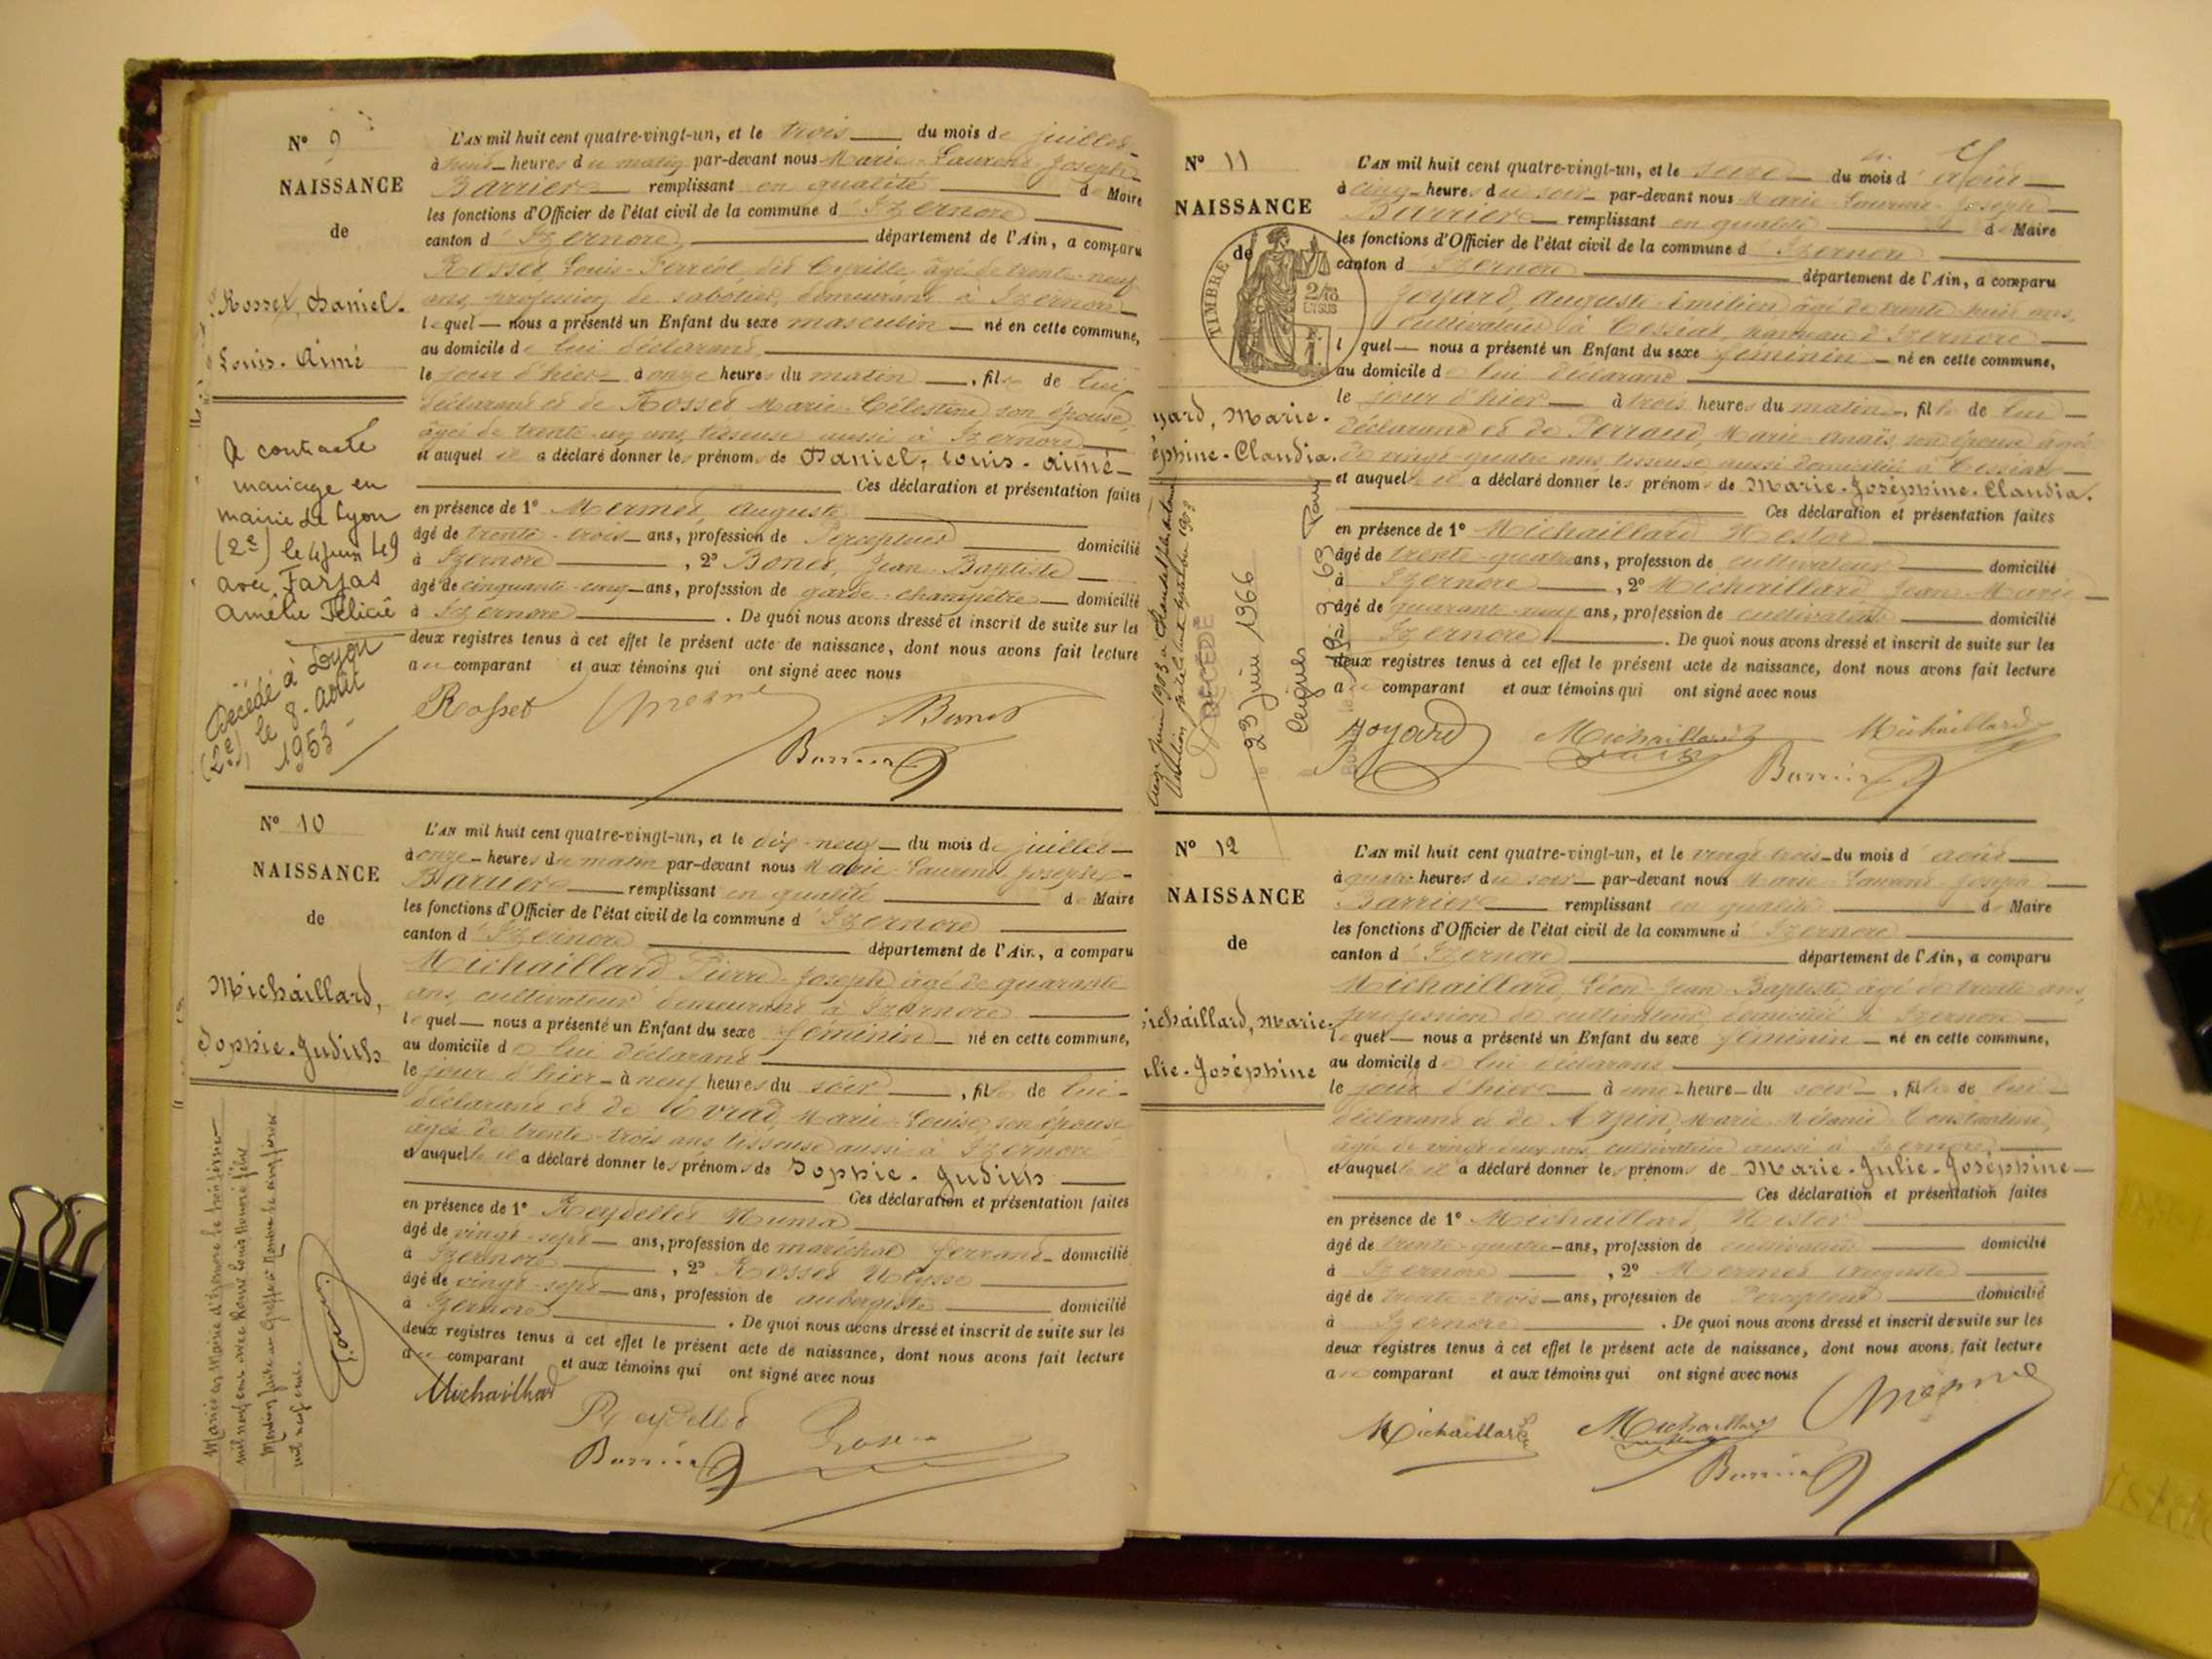 N° 9
NAISSANCE
de
Rosset, Daniel.
Louis. Aimé
A contracté
mariage en
mairie de Lyon
(2e) le 4 juin 49
avec Farjas
Amélie Félicie
Décédé à Lyon
(2e), le 8. Août
1953
L'AN mil huit cent quatre-vingt-un, et le trois du mois de juillet
à heures du matin par-devant nous Marie-Laurent-Joseph
Barrier remplissant en qualité de Maire
les fonctions d'Officier de l'état civil de la commune d'Izernore
canton d'Izernore, département de l'Ain, a comparu
Rosset, Louis-Ferréol, dit Cyrille, âgé de trente-neuf
ans, profession de sabotier, demeurant à Izernore
lequel nous a présenté un Enfant du sexe masculin né en cette commune,
au domicile de lui déclarant
le jour d'hier à onze heures du matin, fils de lui
déclarant et de Rosset Marie-Célestine son épouse
âgée de trente-un ans, tisseuse aussi à Izernore
et auquel il a déclaré donner les prénoms de Daniel, Louis-Aimé
Ces déclaration et présentation faites
en présence de 1° Mermet Auguste
âgé de trente-trois ans, profession de Percepteur domicilié
à Izernore, 2° Bonet, Jean-Baptiste
âgé de cinquante-cinq ans, profession de garde-champêtre domicilié
à Izernore. De quoi nous avons dressé et inscrit de suite sur les
deux registres tenus à cet effet le présent acte de naissance, dont nous avons fait lecture
au comparant et aux témoins qui ont signé avec nous
Rosset Bonet
Barrier
N° 10
NAISSANCE
de
Michaillard,
Sophie-Judith
L'AN mil huit cent quatre-vingt-un, et le dix-neuf du mois de juillet
à onze heures du matin par-devant nous Marie-Laurent-Joseph
Barrier remplissant en qualité de Maire
les fonctions d'Officier de l'état civil de la commune d'Izernore
canton d'Izernore département de l'Ain, a comparu
Michaillard Pierre-Joseph âgé de quarante
ans, cultivateur demeurant à Izernore
lequel nous a présenté un Enfant du sexe féminin né en cette commune,
au domicile de lui déclarant
le jour d'hier à neuf heures du soir, fille de lui
déclarant et de Evrad, Marie-Louise, son épouse
âgée de trente-trois ans tisseuse aussi à Izernore
et auquel il a déclaré donner les prénoms de Sophie-Judith
Ces déclaration et présentation faites
en présence de 1° Reydellet Numa
âgé de vingt-sept ans, profession de maréchal ferrand domicilié
à Izernore, 2° Rosset Ulysse
âgé de vingt-sept ans, profession de aubergiste domicilié
à Izernore. De quoi nous avons dressé et inscrit de suite sur les
deux registres tenus à cet effet le présent acte de naissance, dont nous avons fait lecture
au comparant et aux témoins qui ont signé avec nous
Michaillard
Reydellet
Barrier
N° 11
NAISSANCE
de
TIMBRE
yard, Marie-
éphine-Claudia.
DÉCÉDÉ
23 Juin 1966
L'AN mil huit cent quatre-vingt-un, et le seize du mois d'Août
à cinq heures du soir par-devant nous Marie-Laurent-Joseph
Barrier remplissant en qualité de Maire
les fonctions d'Officier de l'état civil de la commune d'Izernore
canton d'Izernore département de l'Ain, a comparu
Joyard, Auguste-Emilien âgé de trente-huit ans,
cultivateur à Cessiat, hameau d'Izernore
lequel nous a présenté un Enfant du sexe féminin né en cette commune,
au domicile de lui déclarant
le jour d'hier à trois heures du matin, fille de lui
déclarant et de Perraud, Marie-Anaïs, son épouse âgée
de vingt-quatre ans, tisseuse aussi domiciliée à Cessiat
et auquel il a déclaré donner les prénoms de Marie-Joséphine-Claudia.
Ces déclaration et présentation faites
en présence de 1° Michaillard Nestor
âgé de trente-quatre ans, profession de cultivateur domicilié
à Izernore, 2° Michaillard, Jean-Marie
âgé de quarante-neuf ans, profession de cultivateur domicilié
à Izernore. De quoi nous avons dressé et inscrit de suite sur les
deux registres tenus à cet effet le présent acte de naissance, dont nous avons fait lecture
au comparant et aux témoins qui ont signé avec nous
Joyard Michaillard Michaillard
Barrier
N° 12
NAISSANCE
de
ichaillard, Marie-
ulie-Joséphine
L'AN mil huit cent quatre-vingt-un, et le vingt-trois du mois d'août
à quatre heures du soir par-devant nous Marie-Laurent-Joseph
Barrier remplissant en qualité de Maire
les fonctions d'Officier de l'état civil de la commune d'Izernore
canton d'Izernore département de l'Ain, a comparu
Michaillard, Léon-Jean-Baptiste âgé de trente ans,
profession de cultivateur, domicilié à Izernore
lequel nous a présenté un Enfant du sexe féminin né en cette commune,
au domicile de lui déclarant
le jour d'hier à une heure du soir, fille de lui
déclarant et de Arpin, Marie-Mélanie-Constantine,
âgée de vingt-deux ans, cultivatrice aussi à Izernore
et auquel il a déclaré donner les prénoms de Marie-Julie-Joséphine
Ces déclaration et présentation faites
en présence de 1° Michaillard, Nestor
âgé de trente-quatre ans, profession de cultivateur domicilié
à Izernore, 2° Mermet Auguste
âgé de trente-trois ans, profession de Percepteur domicilié
à Izernore. De quoi nous avons dressé et inscrit de suite sur les
deux registres tenus à cet effet le présent acte de naissance, dont nous avons fait lecture
au comparant et aux témoins qui ont signé avec nous
Michaillard Michaillard
Barrier